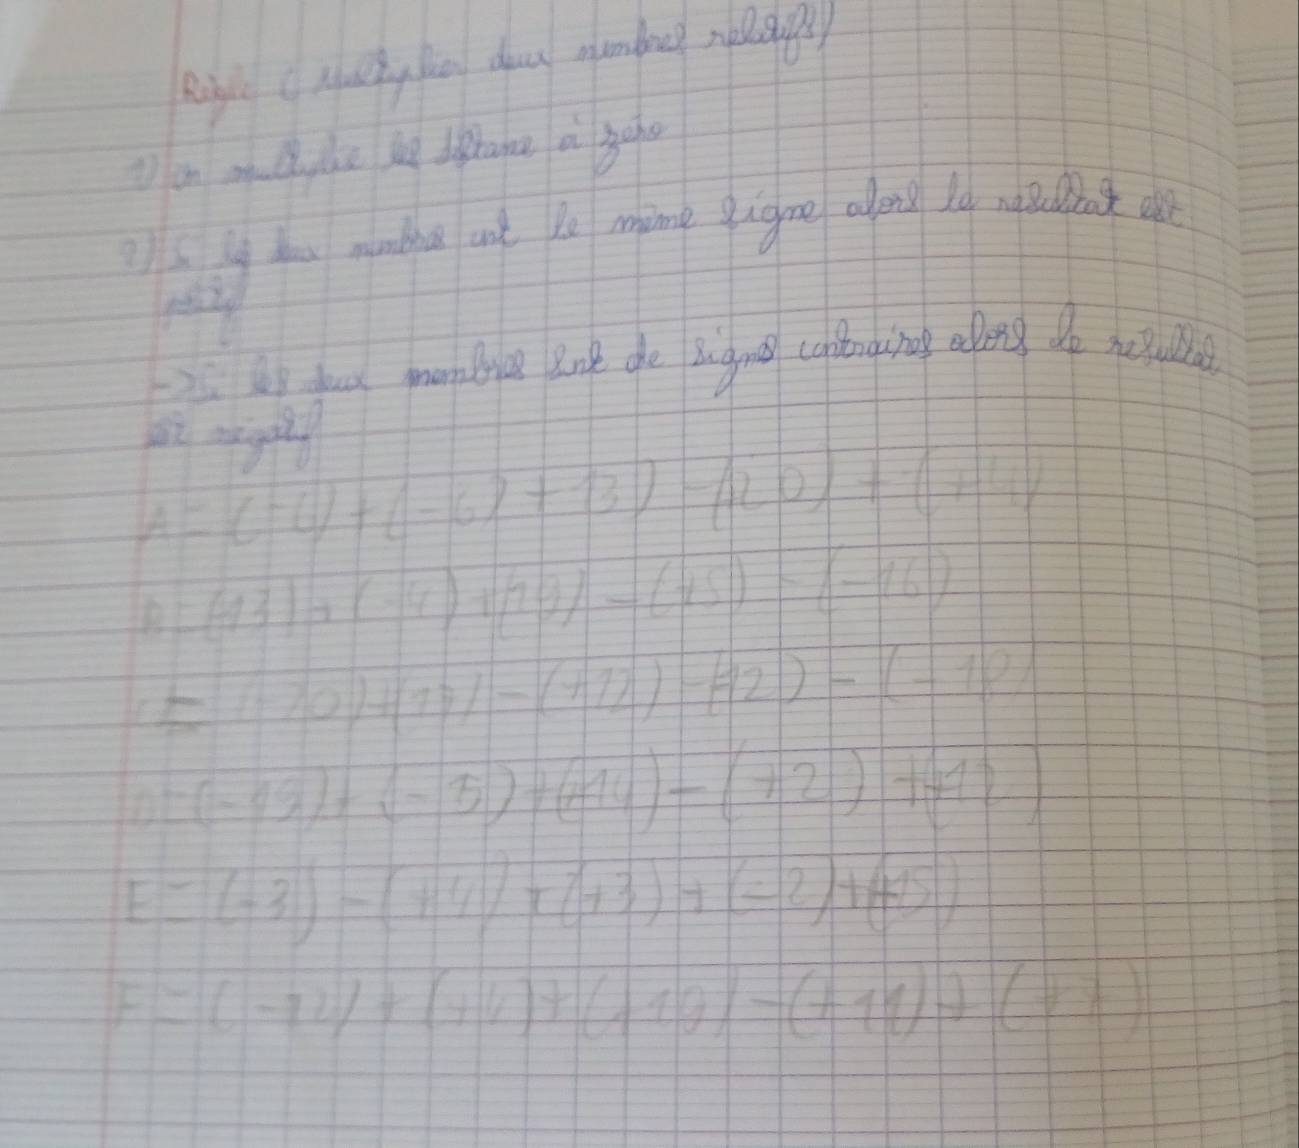 Règle (Multiplier deux nombres relatifs)
1) on multiplie les distane à zero
2) Si les deux nombres ont le même signe alors le resultat est
positif
-> Si les deux nombres sont de signes contraires alors le resultat
est negatif
A = (-4) + (-6) + 13) - (20) + (+4)
= (+13) + (-4) + (+9) - (+5) - (-16)
= (20) + (17) - (+12) - (+2) - (-10)
D = (-13) + (-5) + (+14) - (+2) + (+12)
E = (-3) - (+4) + (+3) + (-2) + (+15)
F = (-12) + (+4) + (+19) - (+11) + (+7)